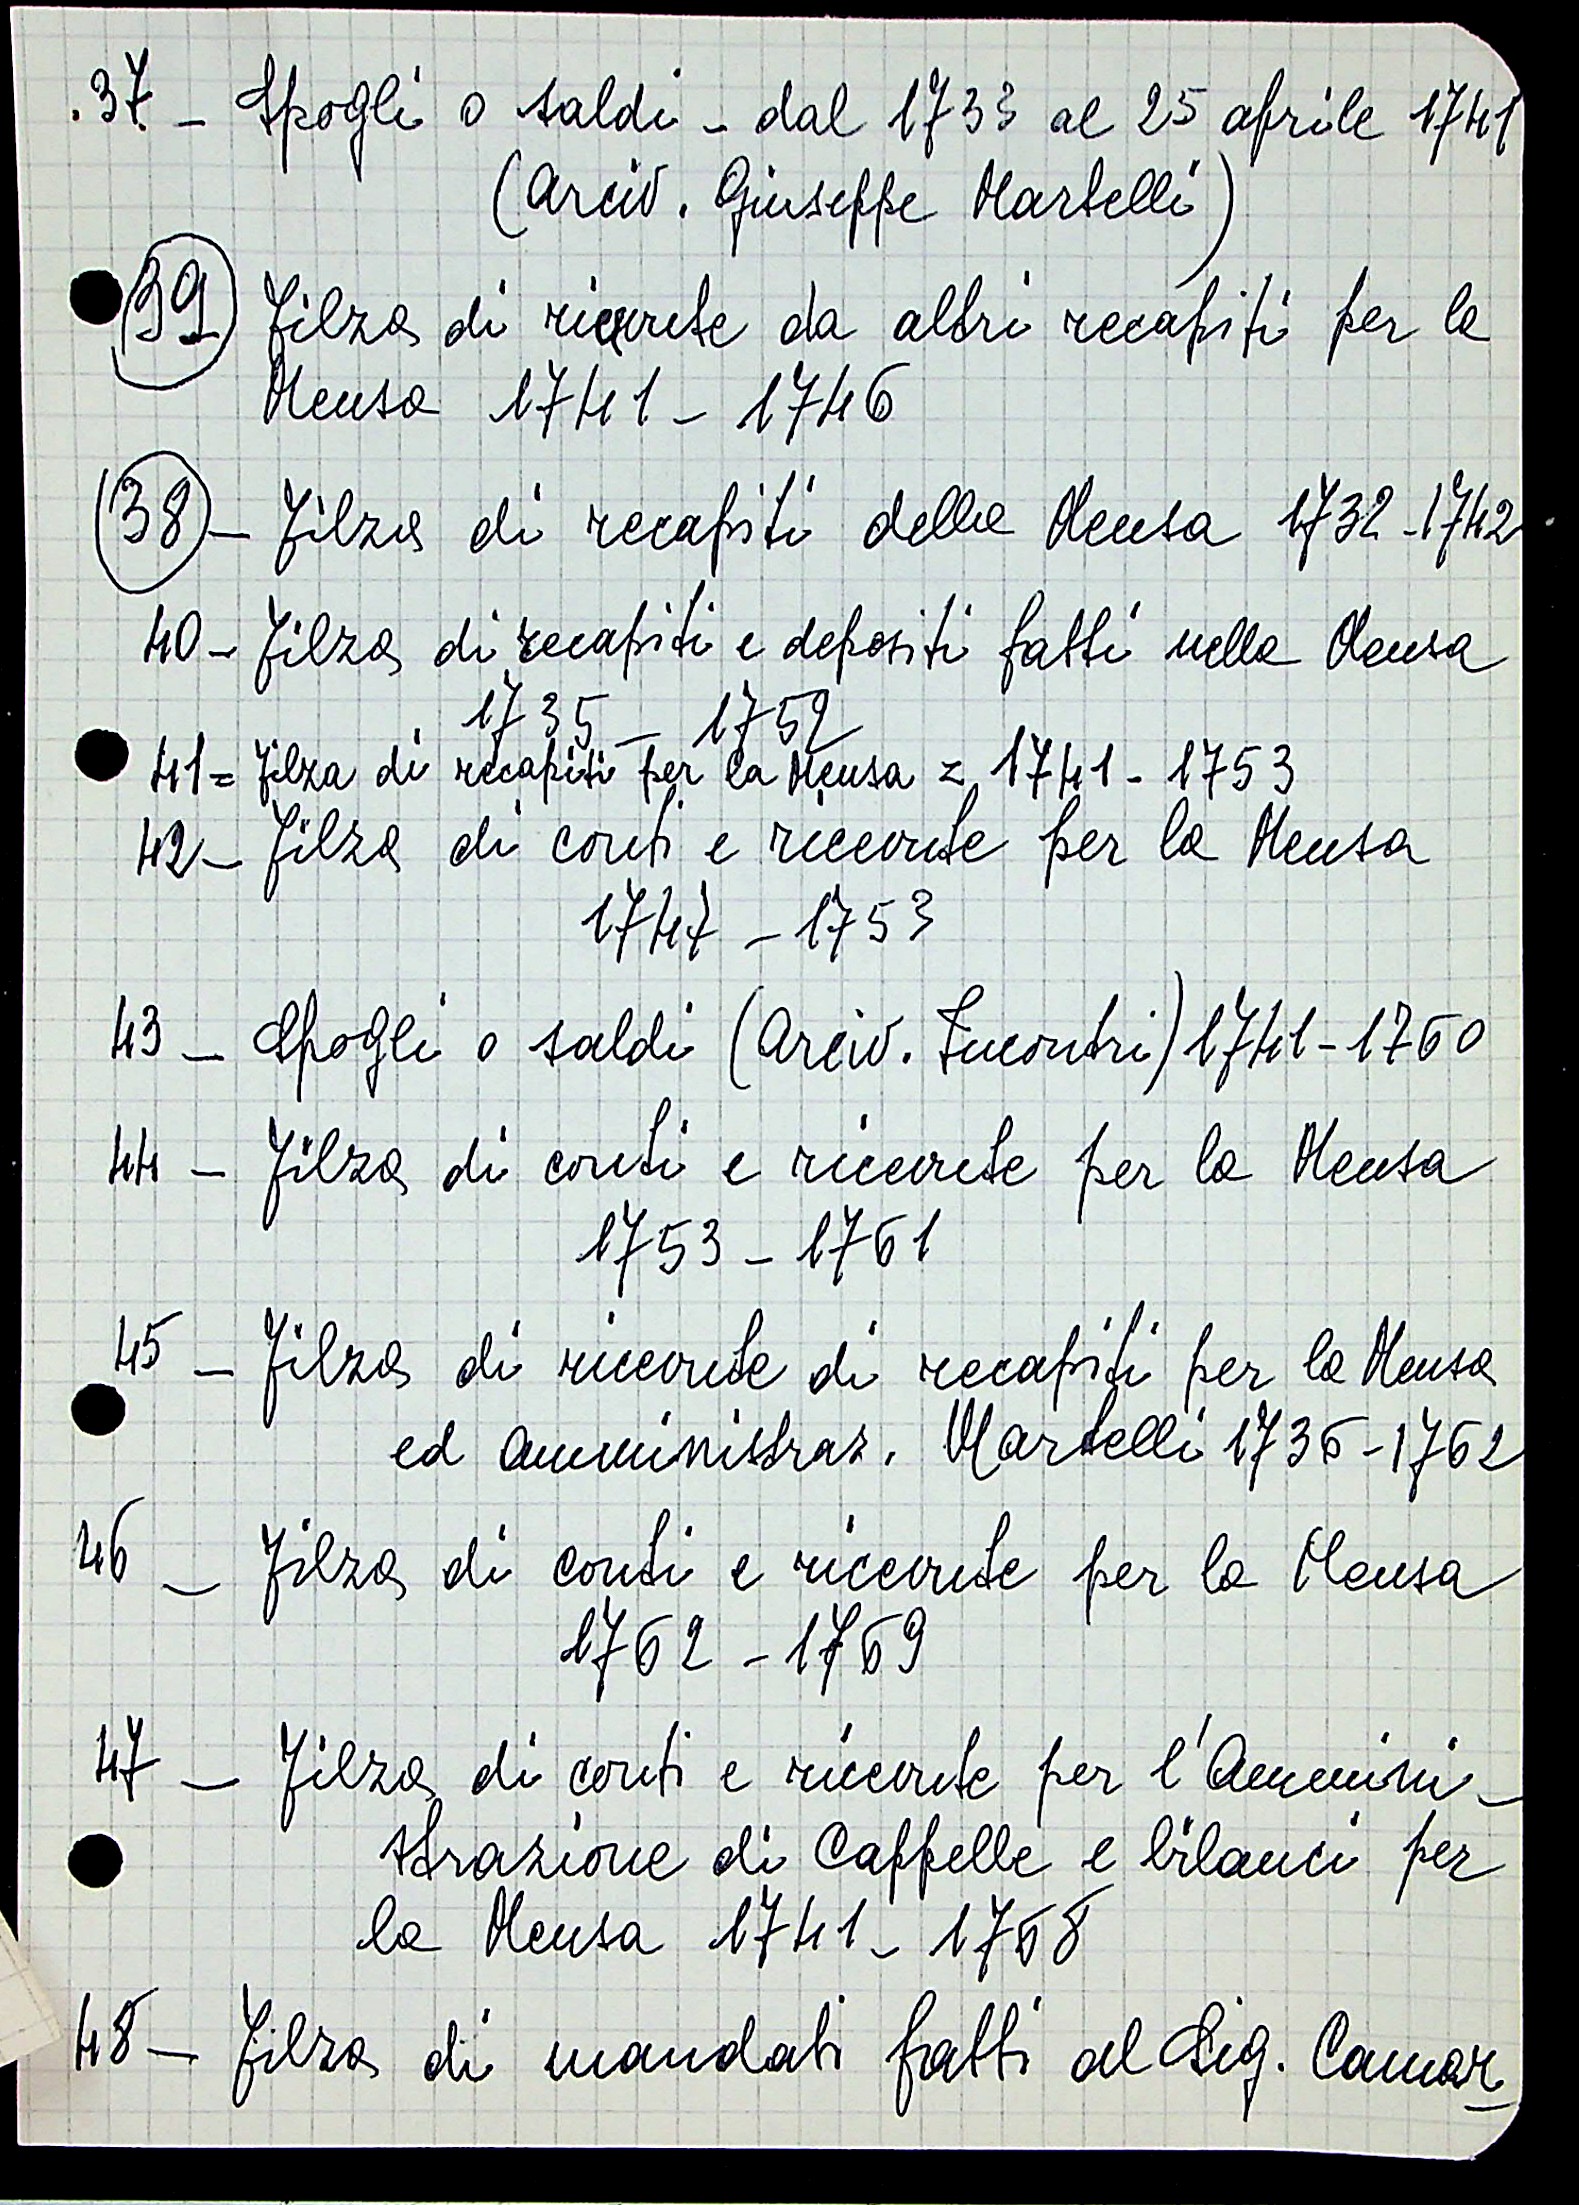 .37. - Spogli o saldi - dal 1733 al 25 aprile 1741
(Arciv. Giuseppe Martelli)
39 Filza di ricevute da altri recapiti per la
Mensa 1741 - 1746
38 - Filza di recapiti della Mensa 1732-1742
40 - Filza di recapiti e depositi fatti nella Mensa
1735 - 1752
41 = Filza di recapiti per la Mensa = 1741 - 1753
42 - Filza di conti e ricevute per la Mensa
1747 - 1753
43 - Spogli o saldi (Arciv. Incontri) 1741-1760
44 - Filza di conti e ricevute per la Mensa
1753 - 1761
45 - Filza di ricevute di recapiti per la Mensa
ed amministraz. Martelli 1736-1762
46 - Filza di conti e ricevute per la Mensa
1762 - 1769
47 - Filza di conti e ricevute per l'Ammini-
strazione di Cappelle e bilanci per
la Mensa 1741 - 1768
48 - Filza di mandati fatti al Sig. Camar-